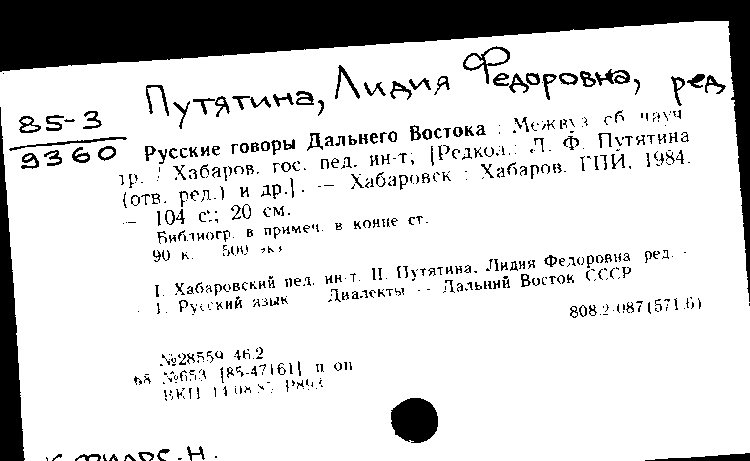 Путятина, Лидия Федоровна, ред
85-3
9360
Русские говоры Дальнего Востока : Межвуз сб науч
тр. / Хабаров. гос. пед. ин-т; [Редкол.: Л. Ф. Путятина
(отв. ред.) и др.]. — Хабаровск : Хабаров. ГПИ, 1984.
— 104 с.; 20 см.
Библиогр. в примеч. в конце ст.
90 к. 500 экз
I. Хабаровский пед. ин-т. II. Путятина, Лидия Федоровна ред. -
1. Русский язык — Диалекты — Дальний Восток СССР
808.2-087(571.6)
№28559 46.2
№653 [85-47161] п оп
ВКП